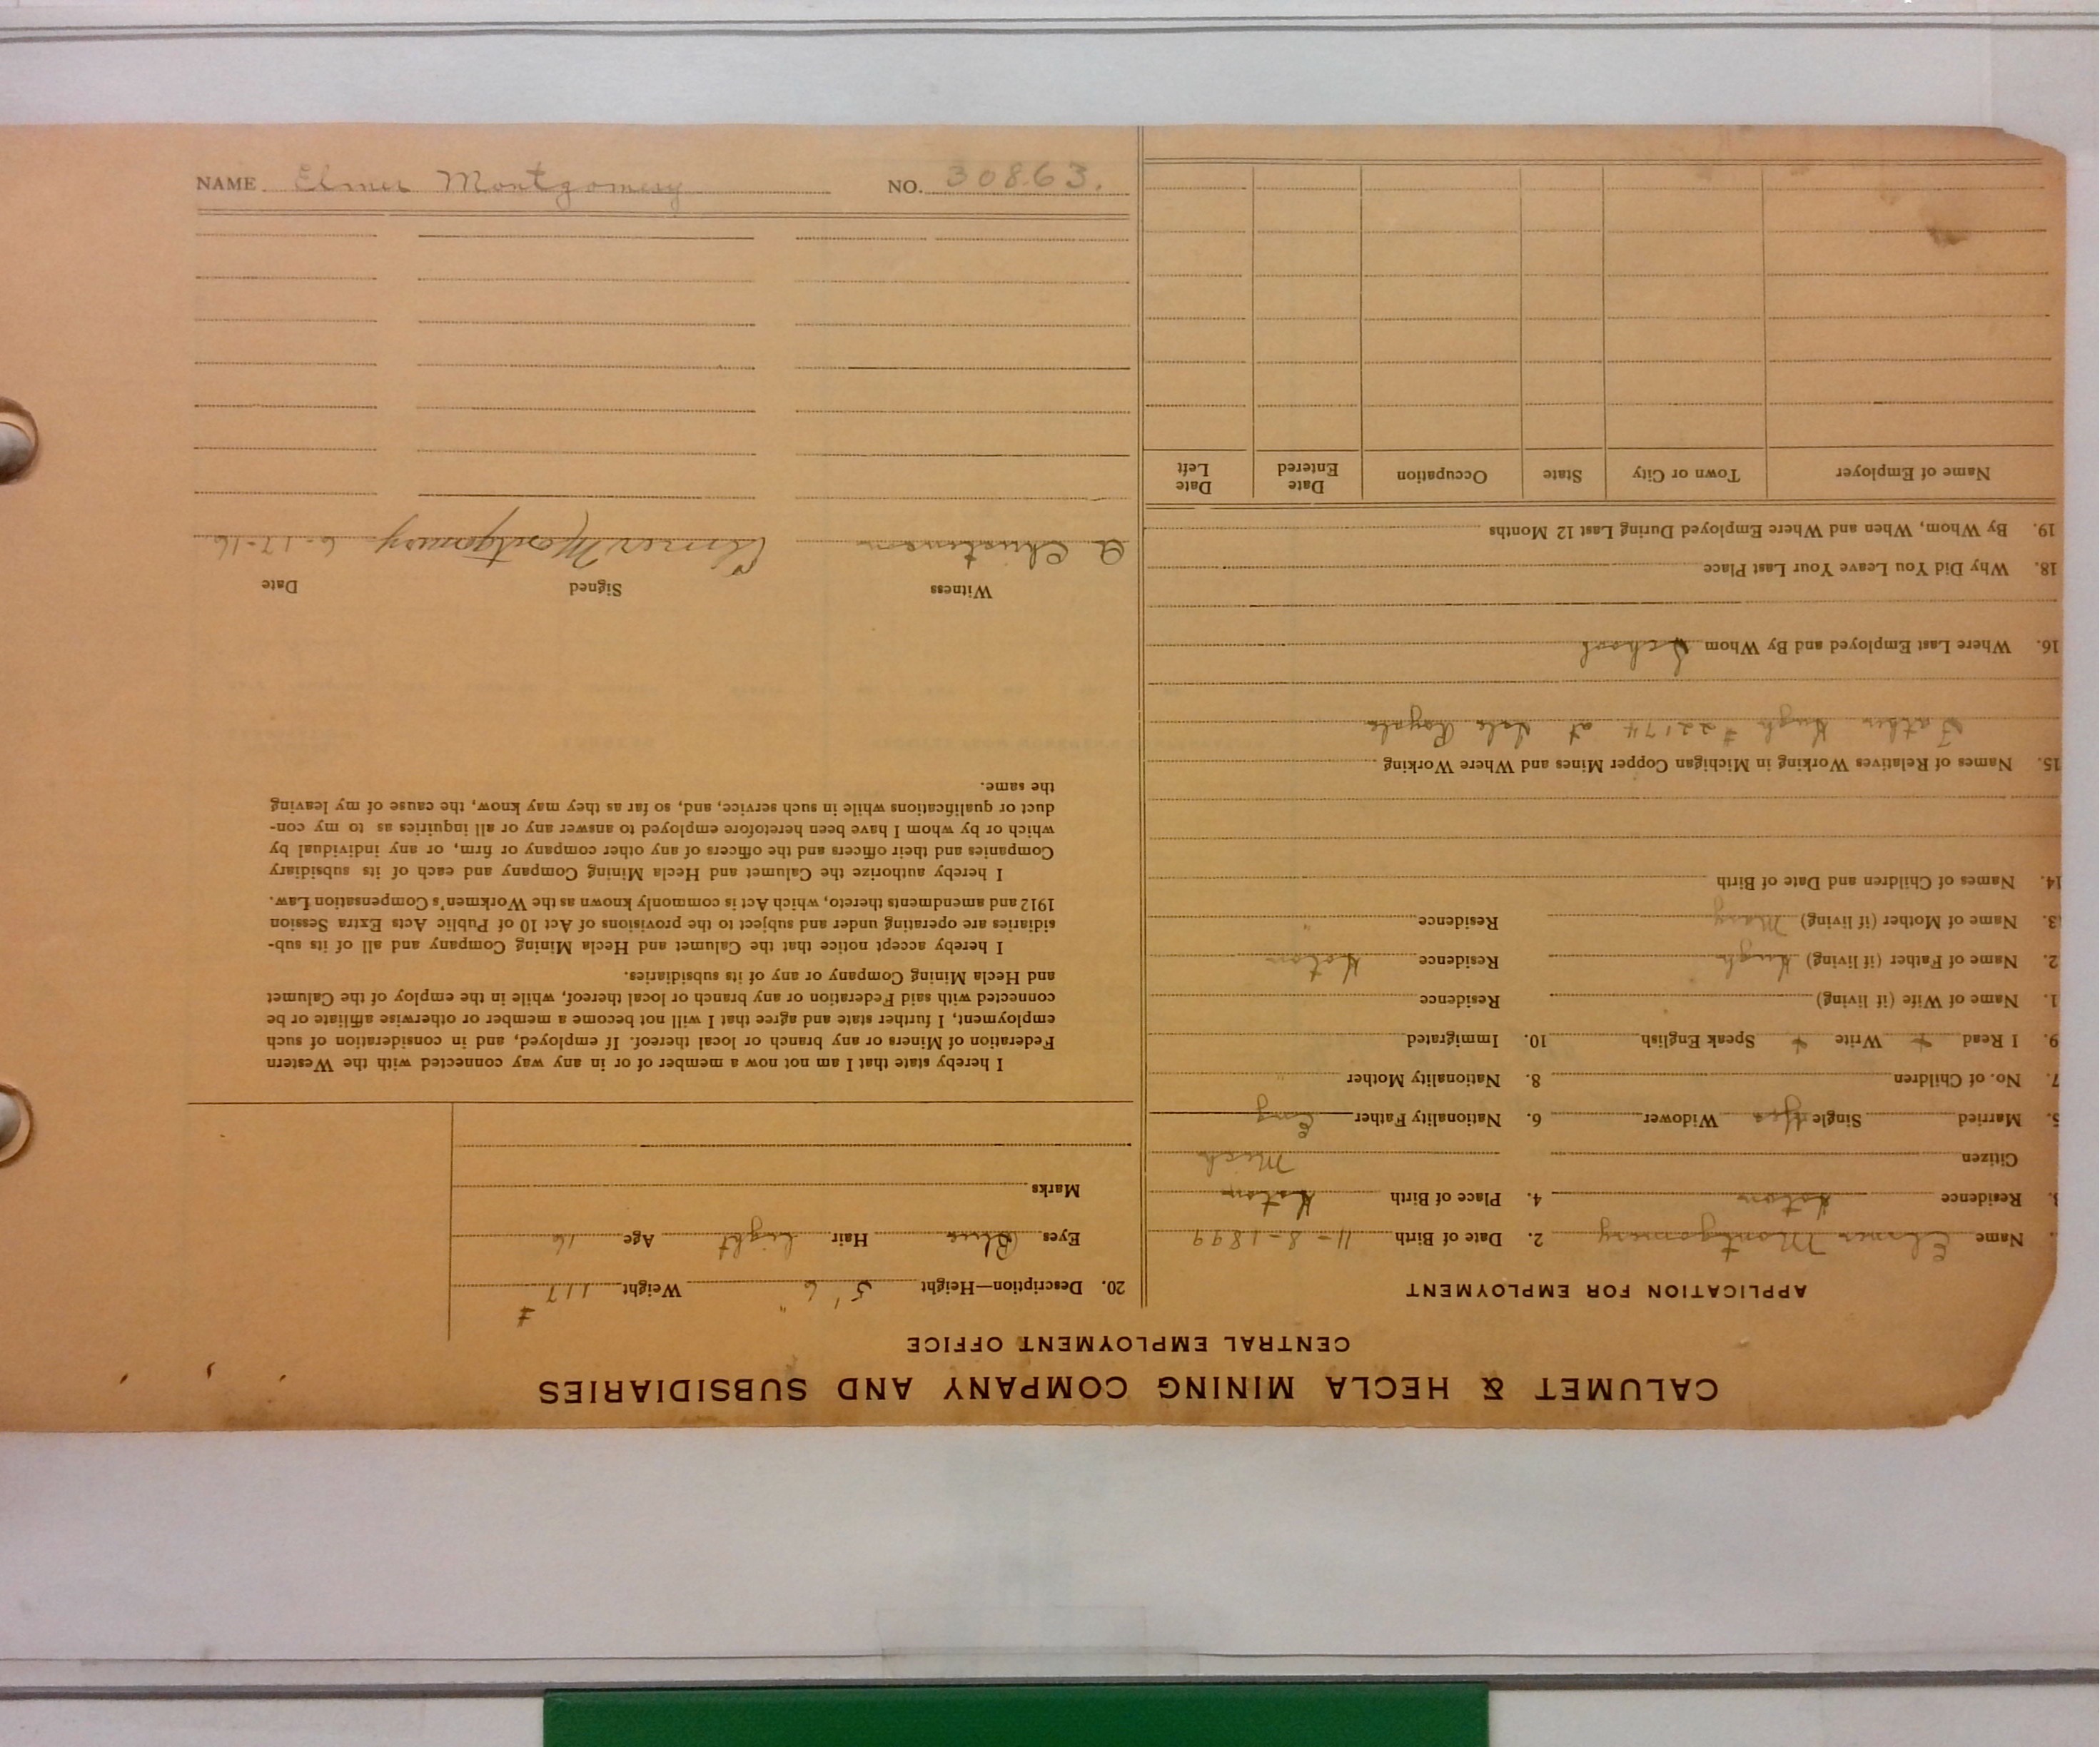 CALUMET & HECLA MINING COMPANY AND SUBSIDIARIES
CENTRAL EMPLOYMENT OFFICE
APPLICATION FOR EMPLOYMENT
Name Elmer Montgomery 2. Date of Birth 11-8-1899
Residence Hoton 4. Place of Birth Hoton
Citizen Mich
5. Married Single Yes Widower 6. Nationality Father Eng
7. No. of Children 8. Nationality Mother "
9. I Read + Write + Speak English 10. Immigrated
1. Name of Wife (if living) Residence
2. Name of Father (if living) Hugh Residence Hoton
3. Name of Mother (if living) Mary Residence "
14. Names of Children and Date of Birth
15. Names of Relatives Working in Michigan Copper Mines and Where Working
Father Hugh #22174 at Isle Royale
16. Where Last Employed and By Whom School
18. Why Did You Leave Your Last Place
19. By Whom, When and Where Employed During Last 12 Months
Name of Employer Town or City State Occupation Date Entered Date Left
20. Description—Height 5' 6" Weight 117 #
Eyes Blue Hair Light Age 16
Marks
I hereby state that I am not now a member of or in any way connected with the Western
Federation of Miners or any branch or local thereof. If employed, and in consideration of such
employment, I further state and agree that I will not become a member or otherwise affiliate or be
connected with said Federation or any branch or local thereof, while in the employ of the Calumet
and Hecla Mining Company or any of its subsidiaries.
I hereby accept notice that the Calumet and Hecla Mining Company and all of its sub-
sidiaries are operating under and subject to the provisions of Act 10 of Public Acts Extra Session
1912 and amendments thereto, which Act is commonly known as the Workmen's Compensation Law.
I hereby authorize the Calumet and Hecla Mining Company and each of its subsidiary
Companies and their officers and the officers of any other company or firm, or any individual by
which or by whom I have been heretofore employed to answer any or all inquiries as to my con-
duct or qualifications while in such service, and, so far as they may know, the cause of my leaving
the same.
Witness Signed Date
A Christensen Elmer Montgomery 6-17-16
NAME Elmer Montgomery NO. 30863.